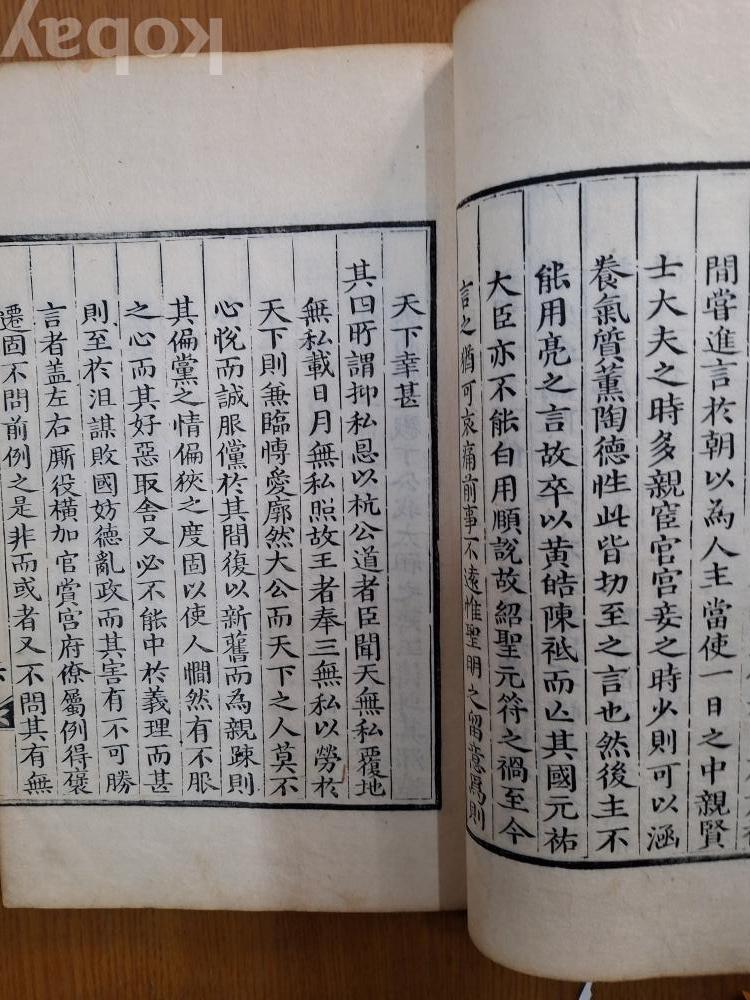 Kobay
間嘗進言於朝以為人主當使一日之中親賢
士大夫之時多親宦官宮妾之時少則可以涵
養氣質薰陶德性此皆切至之言也然後主不
能用亮之言故卒以黃皓陳祗而亡其國元祐
大臣亦不能白用頤說故紹聖元符之禍至今
言之猶可哀痛前事不遠惟聖明之留意焉則
天下幸甚
其四所謂抑私恩以杭公道者臣聞天無私覆地
無私載日月無私照故王者奉三無私以勞於
天下則兼臨愽愛廓然大公而天下之人莫不
心悅而誠服儻於其間復以新舊而為親踈則
其偏黨之情偏狹之度固以使人憪然有不服
之心而其好惡取舍又必不能中於義理而甚
則至於沮謀敗國妨德亂政而其害有不可勝
言者盖左右厮役橫加官賞宮府僚屬例得褒
遷固不問前例之是非而或者又不問其有無